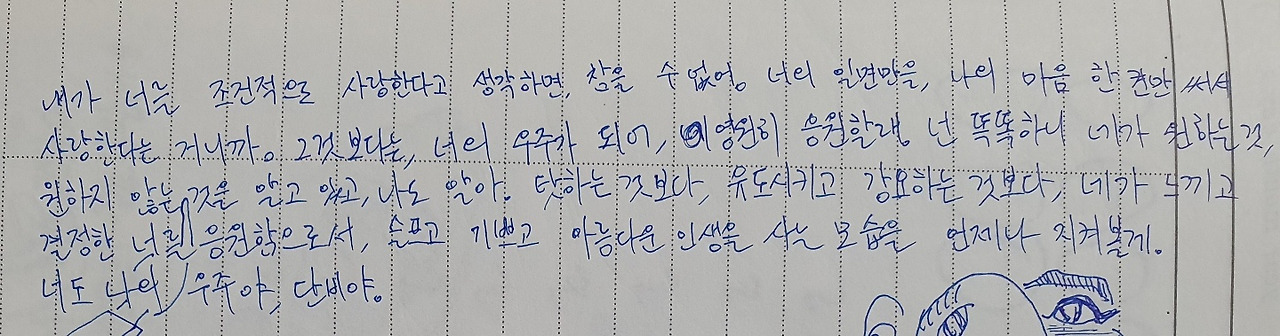 내가 너를 조건적으로 사랑한다고 생각하면, 참을 수 없어. 너의 일면만을, 나의 마음 한 켠만 써서
사랑한다는 거니까. 그것보다는, 너의 우주가 되어, 영원히 응원할래. 넌 똑똑하니 네가 원하는 것,
원하지 않는 것을 알고 있고, 나도 알아. 탓하는 것보다, 유도시키고 강요하는 것보다, 네가 느끼고
결정한 너를 응원함으로서, 슬프고 기쁘고 아름다운 인생을 사는 모습을 언제나 지켜볼게.
너도 나의 우주야, 단비야.